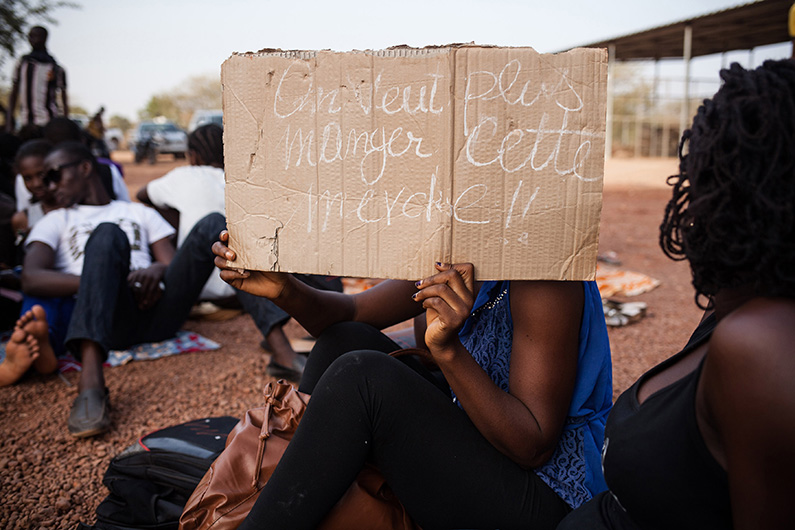 On Veut plus
manger cette
merde !!